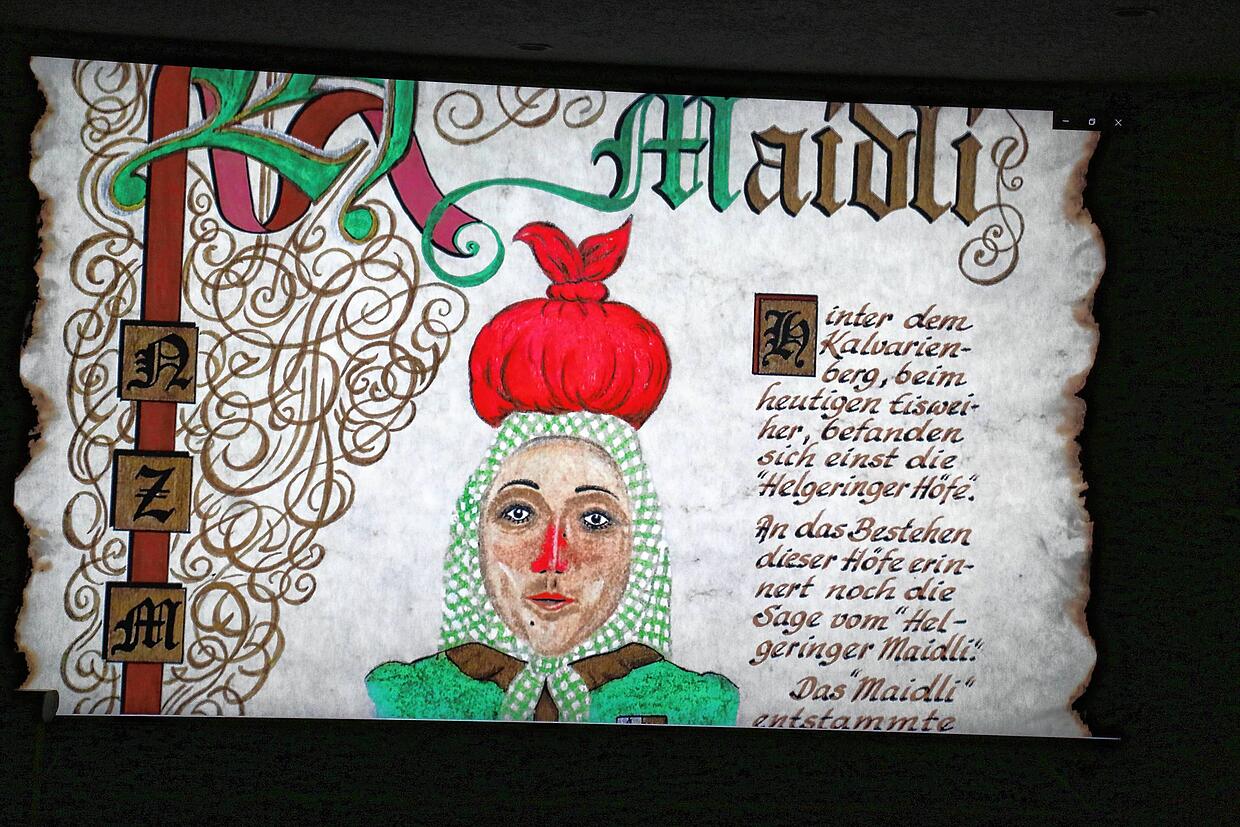 Maidli
N
Z
M
Hinter dem
Kalvarien-
berg, beim
heutigen Eiswei-
her, befanden
sich einst die
"Helgeringer Höfe".
An das Bestehen
dieser Höfe erin-
nert noch die
Sage vom "Hel-
geringer Maidli".
Das "Maidli"
entstammte